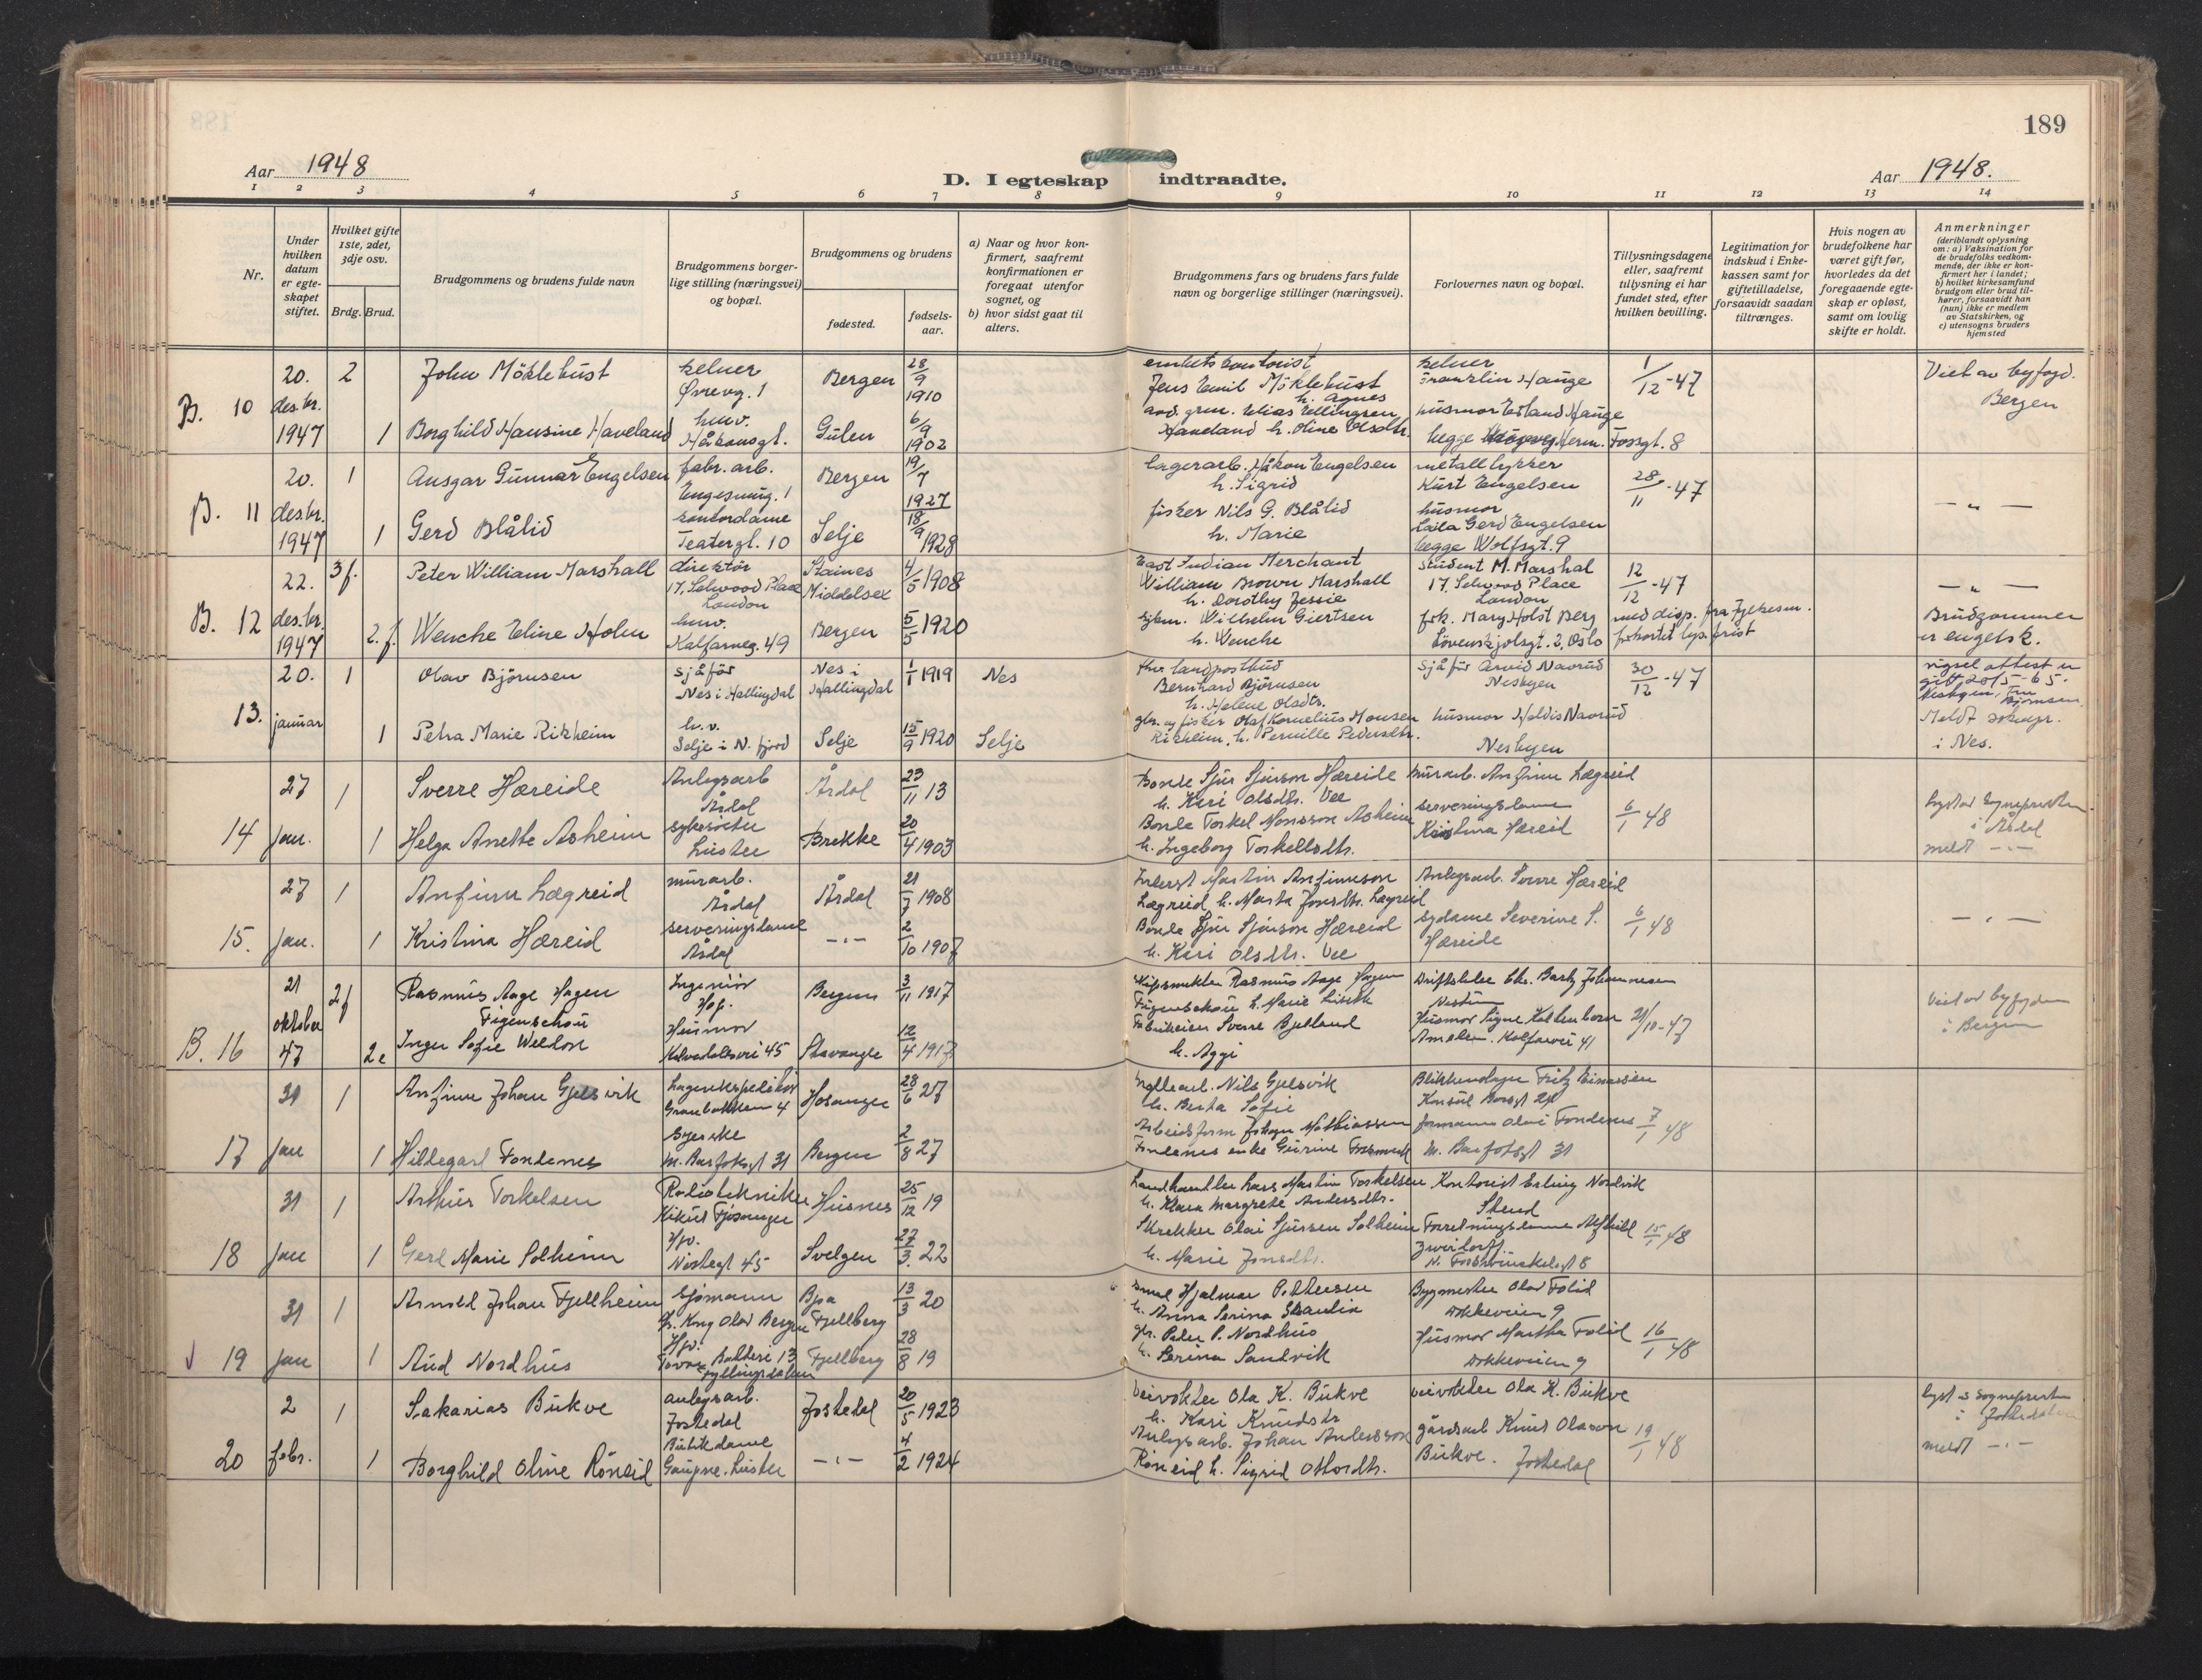 189
Aar 1948
D. I egteskap indtraadte.
Aar 1948.
1 2 3 4 5 6 7 8 9 10 11 12 13 14
Nr.
Under hvilken datum er egteskapet stiftet.
Hvilket gifte 1ste, 2det, 3dje osv.
Brdg. Brud.
Brudgommens og brudens fulde navn
Brudgommens borgerlige stilling (næringsvei) og bopæl.
Brudgommens og brudens
fødested.
fødselsaar.
a) Naar og hvor konfirmert, saafremt konfirmationen er foregaat utenfor sognet, og
b) hvor sidst gaat til alters.
Brudgommens fars og brudens fars fulde navn og borgerlige stillinger (næringsvei).
Forlovernes navn og bopæl.
Tillysningsdagene eller, saafremt tillysning ei har fundet sted, efter hvilken bevilling.
Legitimation for indskud i Enkekassen samt for giftetilladelse, forsaavidt saadan tiltrænges.
Hvis nogen av brudefolkene har været gift før, hvorledes da det foregaaende egteskap er opløst, samt om lovlig skifte er holdt.
Anmerkninger
(deriblandt oplysning om: a) Vaksination for de brudefolks vedkommende, der ikke er konfirmert her i landet; b) hvilket kirkesamfund brudgom eller brud tilhører, forsaavidt han (hun) ikke er medlem av Statskirken, og c) utensogns bruders hjemsted
B. 10
20. des.br. 1947
2
John Möklebust
kelner
Øvrevg. 1
Bergen
28/9 1910
Jens Emil Möklebust
h. Agnes
kelner
Franklin Hauge
1/12-47
Viet av byfogd.
Bergen
1
Borghild Hansine Haveland
husv.
Håkonsgt.
Gulen
6/9 1902
Elias Ellingsen
Haveland h. Oline Olsdtr.
husmor Hauge
begge Herm. Fossgt. 8
B. 11
20. des.br. 1947
1
Ansgar Gunnar Engelsen
fabr. arb.
Engesmug. 1
Bergen
19/7 1927
lagerarb. Håkon Engelsen
h. Sigrid
Kurt Engelsen
28/11-47
— " —
1
Gerd Blålid
kontordame
Teatergt. 10
Selje
18/9 1928
fisker Nils G. Blålid
h. Marie
husmor
Laila Gerd Engelsen
begge Wolfsgt. 9
B. 12
22. des.br. 1947
3 f.
Peter William Marshall
direktör
17, Selwood Place
London
Staines
Middelsex
4/5 1908
East Indian Merchant
William Brown Marshall
h. Dorothy Jessie
student M. Marshal
17, Selwood Place
London
12/12-47
— " —
2. f.
Wenche Eline Holm
husv.
Kalfarveg. 49
Bergen
5/5 1920
Wilhelm Giertsen
h. Wenche
frk. Mary Holst Berg
Lövenskjolsgt. 2, Oslo
med disp. fra fylkesm.
forkortet lys. frist
Brudgommen
er engelsk.
13.
20. januar
1
Olav Björnsen
Sjåför
Nes i Hallingdal
Nes i
Hallingdal
1/1 1919
Nes
landpostbud
Bernhard Björnsen
h. Helene Olsdtr.
Sjåför Arvid Navrud
Nesbyen
30/12-47
1
Petra Marie Rikheim
h.v.
Selje i N. fjord
Selje
15/9 1920
Selje
gbr. og fisker Olaf Kornelius Monsen
Rikheim, h. Pernille Pedersdtr.
husmor Haldis Navrud
Nesbyen
Meldt sokepr.
i Nes.
14
27 jan.
1
Sverre Hæreide
Anlegsarb
Årdal
Årdal
23/11 13
Bonde Sjur Sjurson Hæreide
h. Kari Olsdtr. Vee
murarb. Anfinn Lægreid
6/1 48
lyst av Sognepresten
i Årdal
meldt — " —
1
Helga Anette Asheim
sykesöster
Luster
Brekke
20/4 1903
Bonde Torkel Monsson Asheim
h. Ingeborg Torkellsdtr.
serveringsdame
Kristina Hæreid
15.
27 Jan.
1
Anfinn Lægreid
murarb.
Årdal
Årdal
21/7 1908
Martin Anfinnson
Lægreid h. Marta Jonsdtr. Lægreid
Anlegsarb. Sverre Hæreid
6/1 48
— " —
1
Kristina Hæreid
serveringsdame
Årdal
— " —
2/10 1907
Bonde Sjur Sjurson Hæreid
h. Kari Olsdtr. Vee
sydame Severine S.
Hæreide
B. 16
21 oktober 47
2 f
Rasmus Aage Hagen
Figenschou
Ingeniör
Hop.
Bergen
3/11 1917
Rasmus Aage Hagen
Figenschou h. Marie
Chr. Bartz Johannessen
Nestun
21/10-47
Viet av byfogden
i Bergen
2 e
Inger Sofie Weldon
Husmor
Kalvedalsvei 45
Stavanger
12/4 1917
Sverre Bjelland
h. Aggi
Husmor Signe Kaltenborn
Kalfarvei 41
17
31 Jan
1
Anfinn Johan Gjelsvik
Lagerekspeditör
Granbakken 4
Hosanger
28/6 27
Nils Gjelsvik
h. Berta Sofie
Blikkenslager Fritz Einarsen
Konsul Børsgt
7/1 48
1
Hildegard Fondenes
Syerske
M. Barfotsgt 31
Bergen
2/8 27
Arbeidsform Johan Mathiassen
Fondenes enke Gurine
formann Olai Fondenes
M. Barfotsgt 31
18
31 Jan
1
Arthur Torkelsen
Radiotekniker
Kikut Fjösanger
Husnes
25/12 19
Landhandler Lars Martin Torkelsen
h. Klara Margrete Andersdtr.
Kontorist Erling Nordvik
Stend
15/1 48
1
Gerd Marie Solheim
Hpv.
Nöstegt 45
Svelgen
27/3. 22
Skrekker Olai Sjursen Solheim
h. Marie Jonsdtr.
Forretningsdame Alfhild
19
31 Jan
1
Arnold Johan Fjellheim
Sjömann
Kng Olav Bergen
Bpa
Fjellberg
13/3 20
Hjalmar Pettersen
h. Anna Serina
Bygmester Olav Folid
Dokkeveien 9
16/1 48
1
Aud Nordhus
Hpv.
Batteri 13
Fyllingsdalen
Fjellberg
28/8 19
gbr. Peder P. Nordhus
h. Serina Sandvik
Husmor Martha Folid
Dokkeveien 9
20
2 febr.
1
Sakarias Bukve
anlegsarb.
Jostedal
Jostedal
20/5 1923
Veivokter Ola K. Bukve
h. Kari Knudsdtr
veivokter Ola K. Bukve
19/1 48
lyst av Sognepresten
i Jostedalen
meldt — " —
1
Borghild Oline Röneid
Butikdame
Gaupne, Luster
— " —
4/2 1924
Anlegsarb. Johan Andersson
Röneid h. Sigrid Ottardtr.
gårdsarb Knut Olason
Bukve. Jostedal